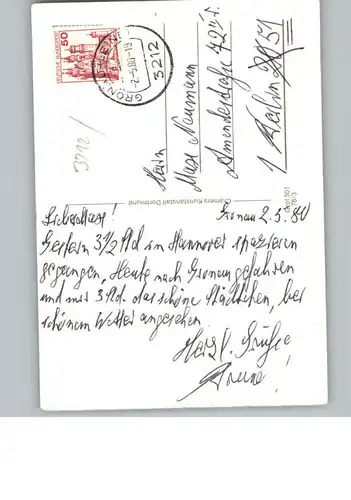 50
DEUTSCHE BUNDESPOST
GRONAU (LEINE)
-2.-5.80-19
3212
3212/
Herrn
Max Neumann
72
1 Berlin
Cramers Kunstanstalt Dortmund
Lieber Max!
Gronau 2.5.80
Gestern 3 1/2 Std in Hannover spazieren
gegangen, Heute nach Gronau gefahren
und mir 3 Std. das schöne Städtchen, bei
schönem Wetter angesehen
Herzl. Grüße